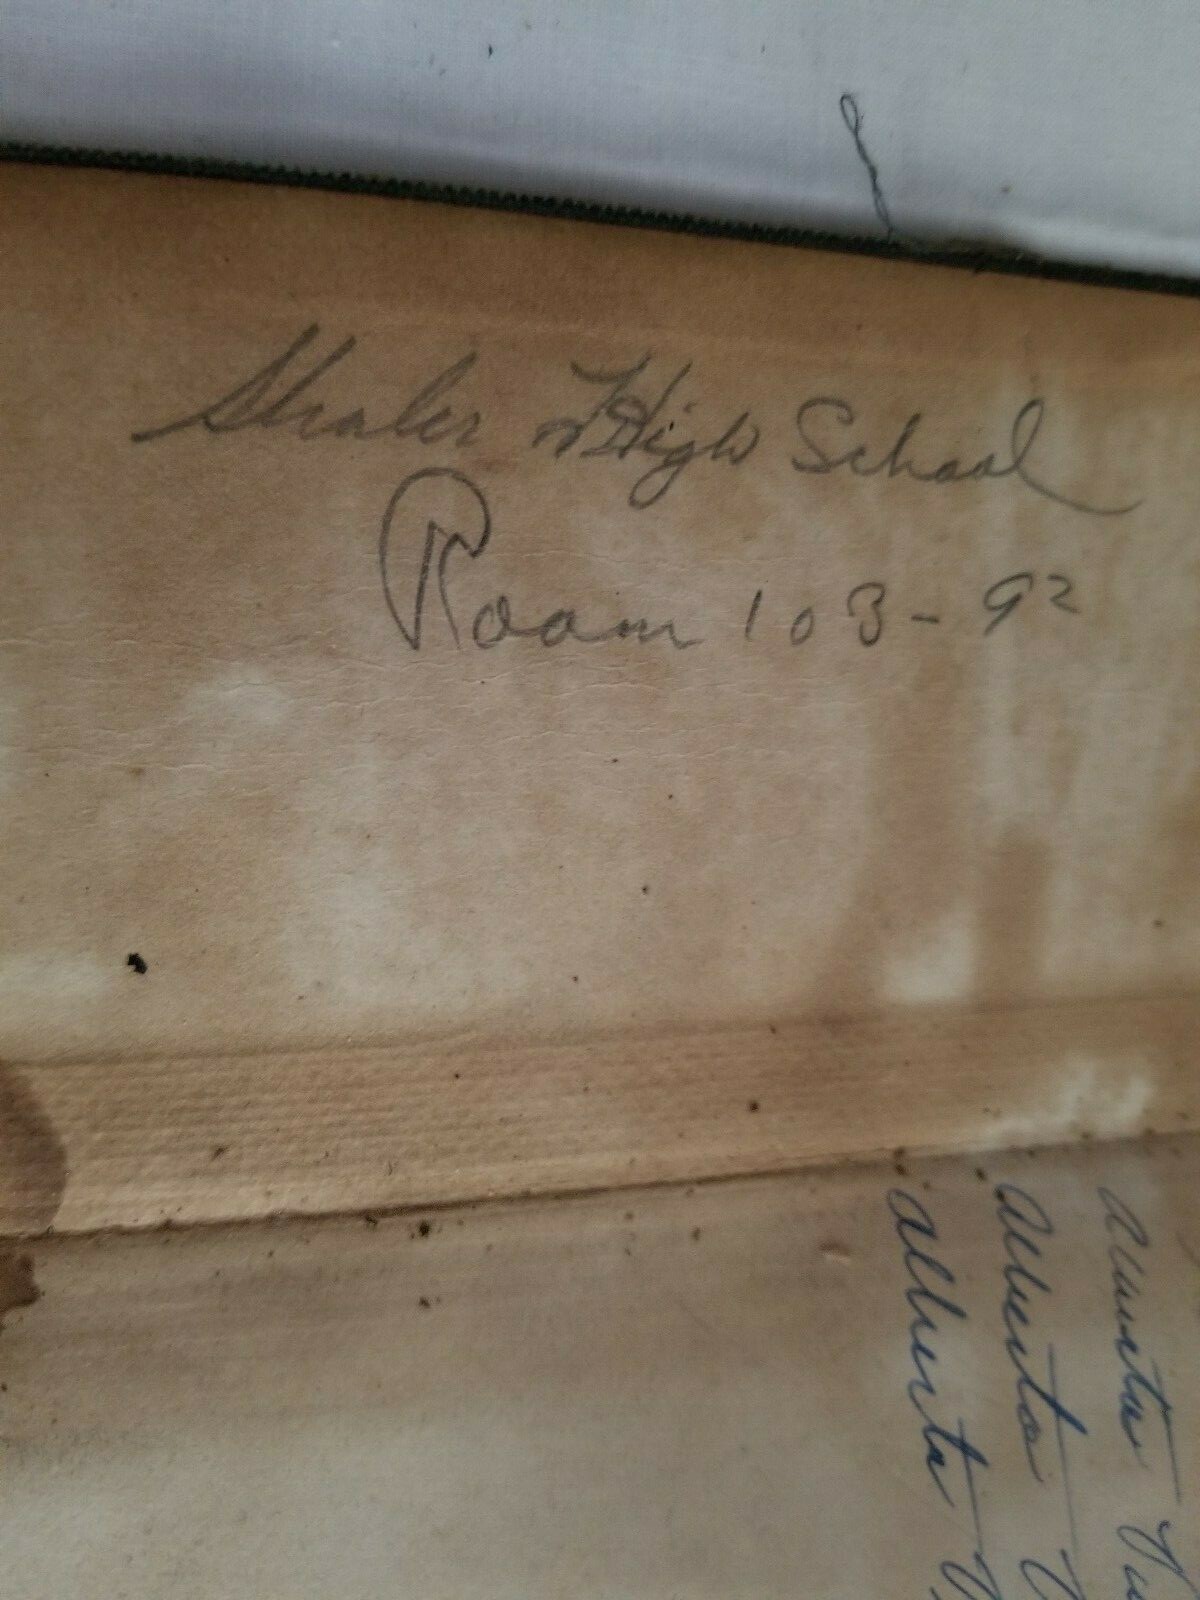 Shaler High School
Room 103-92
Alberta
Alberta
Alberta